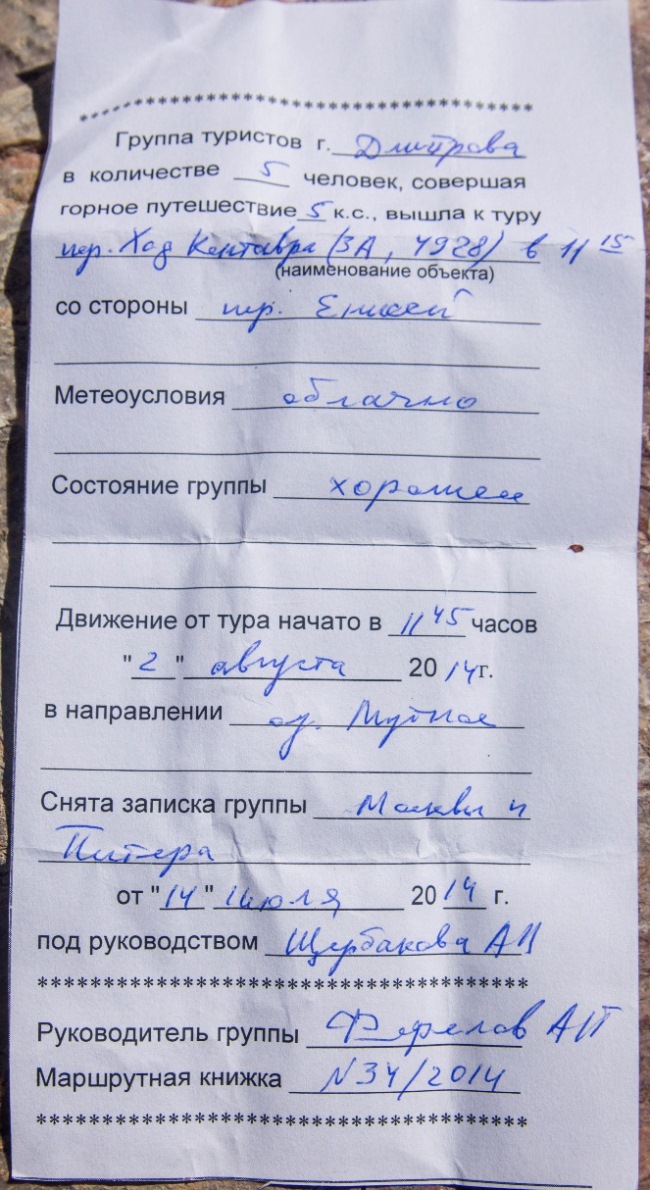 **************************************
Группа туристов г. Дмитрова
в количестве 5 человек, совершая
горное путешествие 5 к.с., вышла к туру
пер. Ход Кентавра (3А, 4928) в 11 15
(наименование объекта)
со стороны пер. Енисей
Метеоусловия облачно
Состояние группы хорошее
Движение от тура начато в 11 45 часов
"2" августа 2014г.
в направлении оз. Мутное
Снята записка группы Москвы и
Питера
от "14" июля 2014 г.
под руководством Щербакова
**************************************
Руководитель группы АП
Маршрутная книжка N34/2014
**************************************